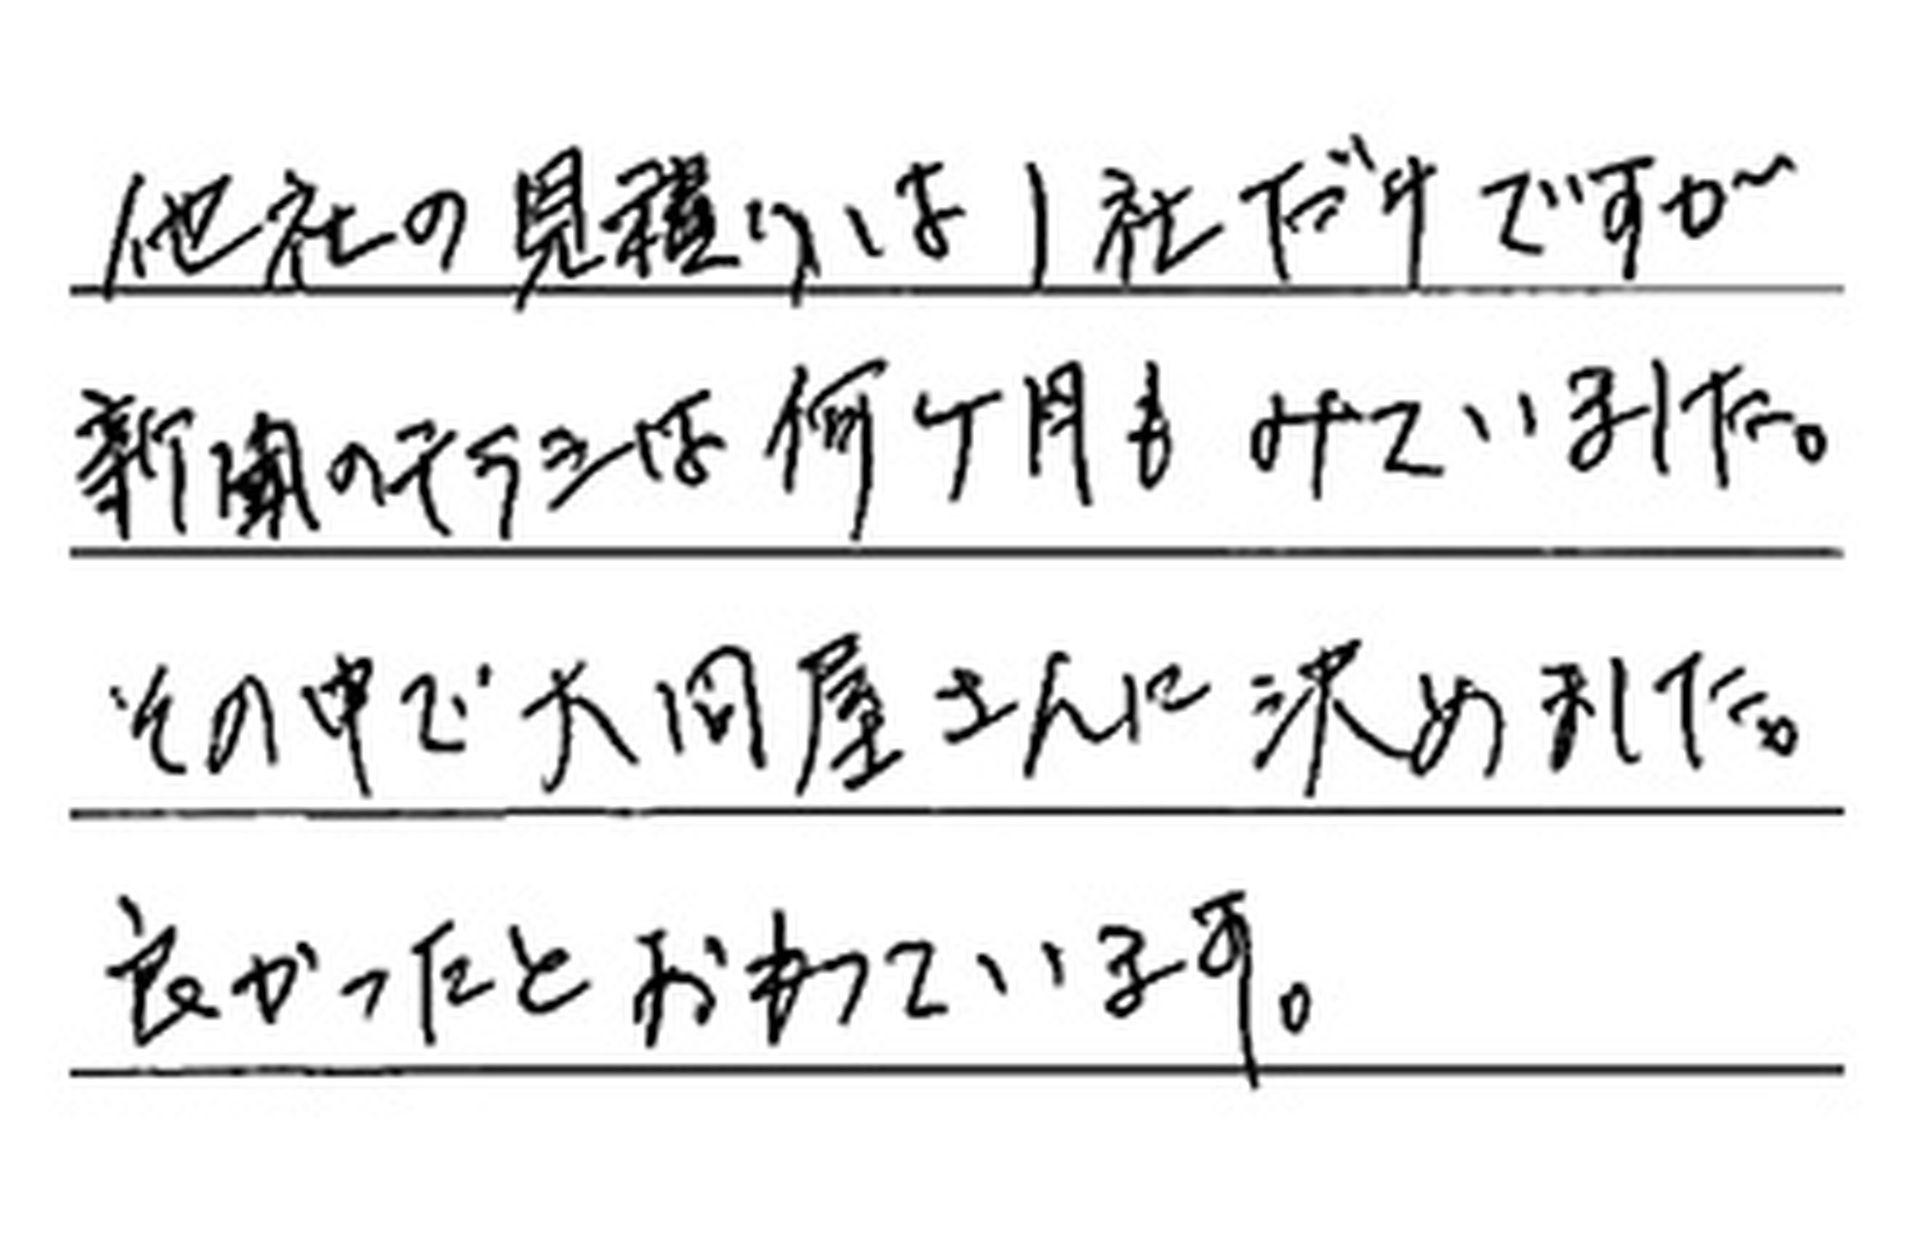 他社の見積りは1社だけですが
新聞のチラシは何ケ月もみていました。
その中で大同屋さんに決めました。
良かったとおもっています。